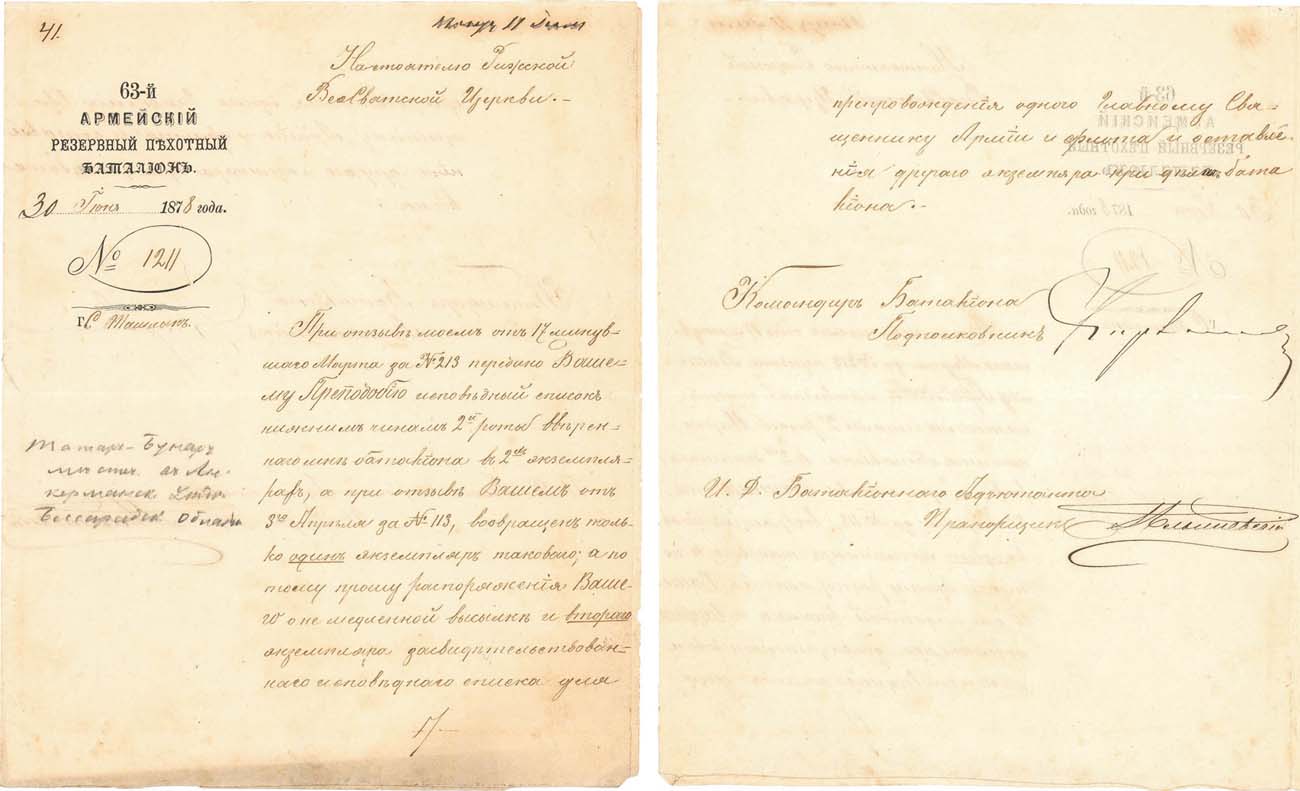 41.
получ 11 Июля
63-й
АРМЕЙСКІЙ
РЕЗЕРВНЫЙ ПѢХОТНЫЙ
БАТАЛІОНЪ.
30 Іюня 1878 года.
№ 1211
г. С. Ташлыкъ.
Татаръ-Бунаръ
мѣстеч. въ Ак-
керманск. уѣздѣ
Бессарабск. Области
Настоятелю Рижской
ВсеСвятской Церкви.-
При отзывѣ моемъ отъ 17 минув-
шаго Марта за № 213 передано Ваше-
му Преподобію исповѣдный списокъ
нижнимъ чинамъ 2й роты ввѣрен-
наго мнѣ баталіона въ 2хъ экземпля-
рахъ, а при отзывѣ Вашемъ отъ
3го Апрѣля за № 113, возвращенъ толь-
ко одинъ экземпляръ таковаго; а по
тому прошу распоряженія Ваше-
го о немедленной высылкѣ и втораго
экземпляра засвидѣтельствован-
наго исповѣднаго списка для
препровожденія одного Главному Свя-
щеннику Арміи и флота и оставле-
нія другаго экземпляра при дѣлахъ бата
ліона.-
Командиръ Баталіона
Подполковникъ
И. Д. Баталіоннаго Адъютанта
Прапорщикъ